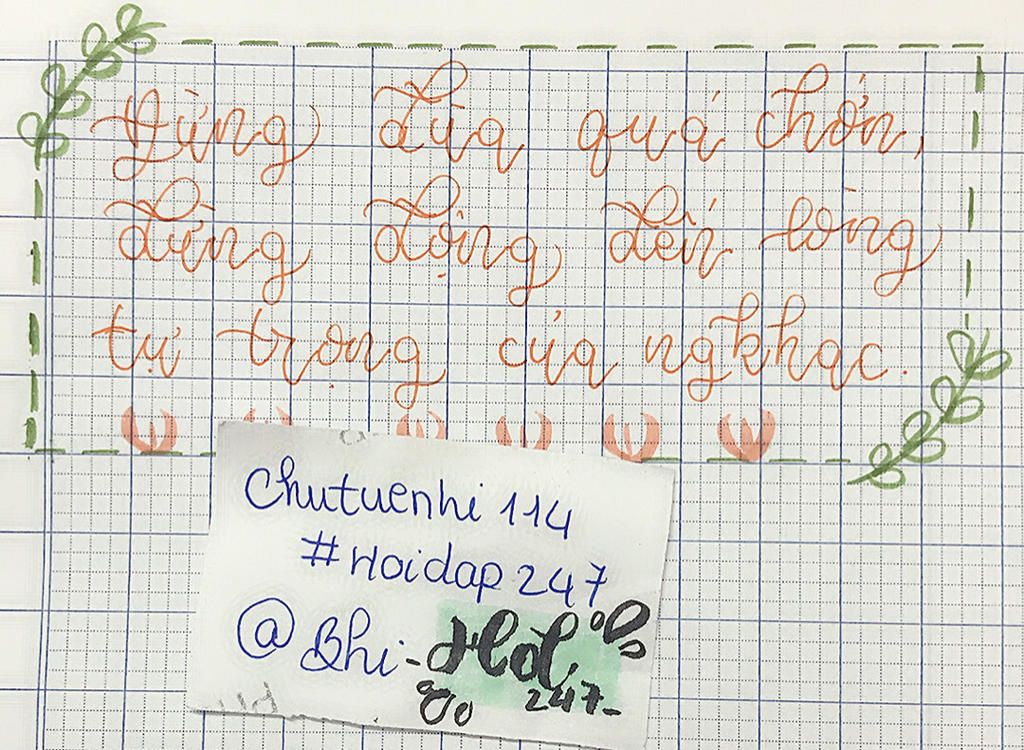 Đừng đùa quá chớn,
đừng động đến lòng
tự trọng của ng khác.
Chutuenhi 114
#Hoidap 247
@Bhi-
247-